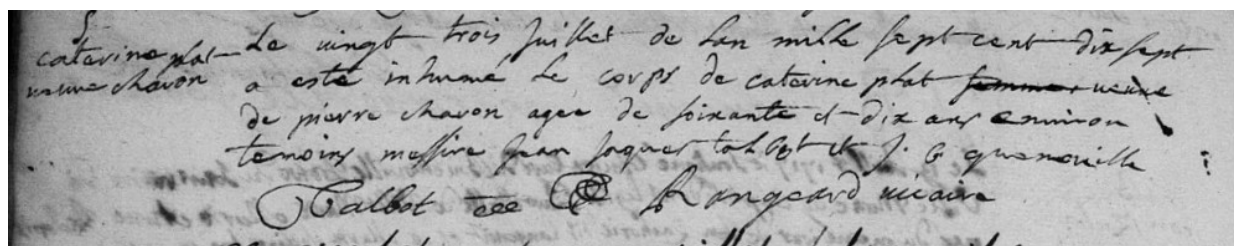 caterine plat
veuve chavon
Le vingt trois juillet de lan mille sept cent dix sept
a este inhumé le corps de caterine plat femme veuve
de pierre chavon agee de soixante et dix ans environ
temoins messire jean jaques talbot et j. b quenouille
Talbot Rangeard vicaire